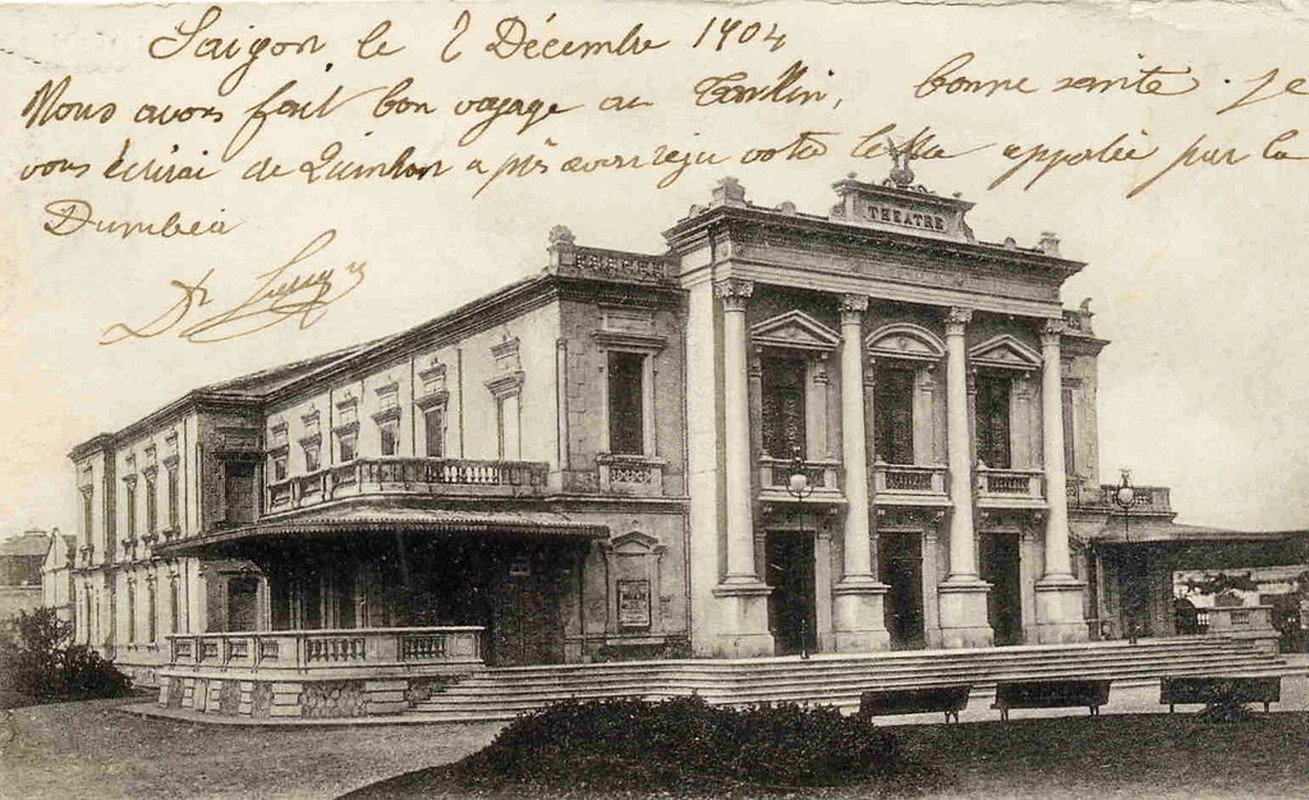 Saigon le 2 Décembre 1904
Nous avons fait bon voyage au Tonkin, bonne santé. Je
vous écrirai de Quinhon après avoir reçu votre lettre apportée par la
Dumbéa
Dr
THEATRE